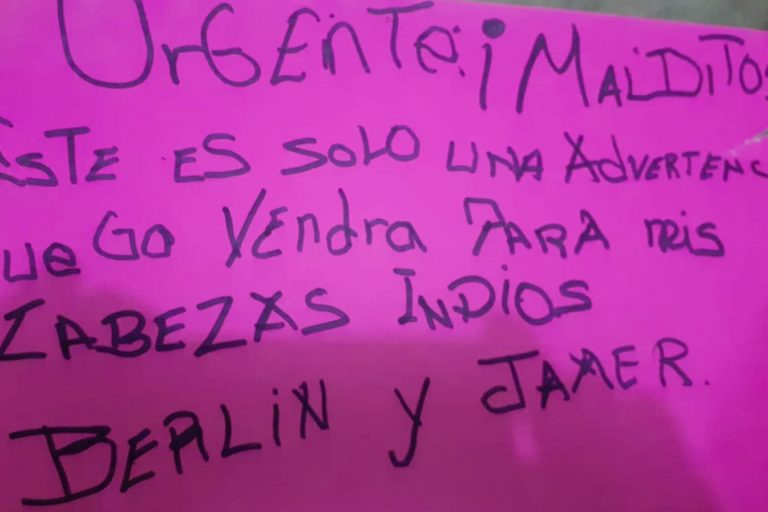 UrGENTE: ¡MALDITOS
ESTE ES SOLO UNA AdVERTENC
ueGo VENdra PARA mis
CABEZAS INDIOS
BERLIN y JAMER.